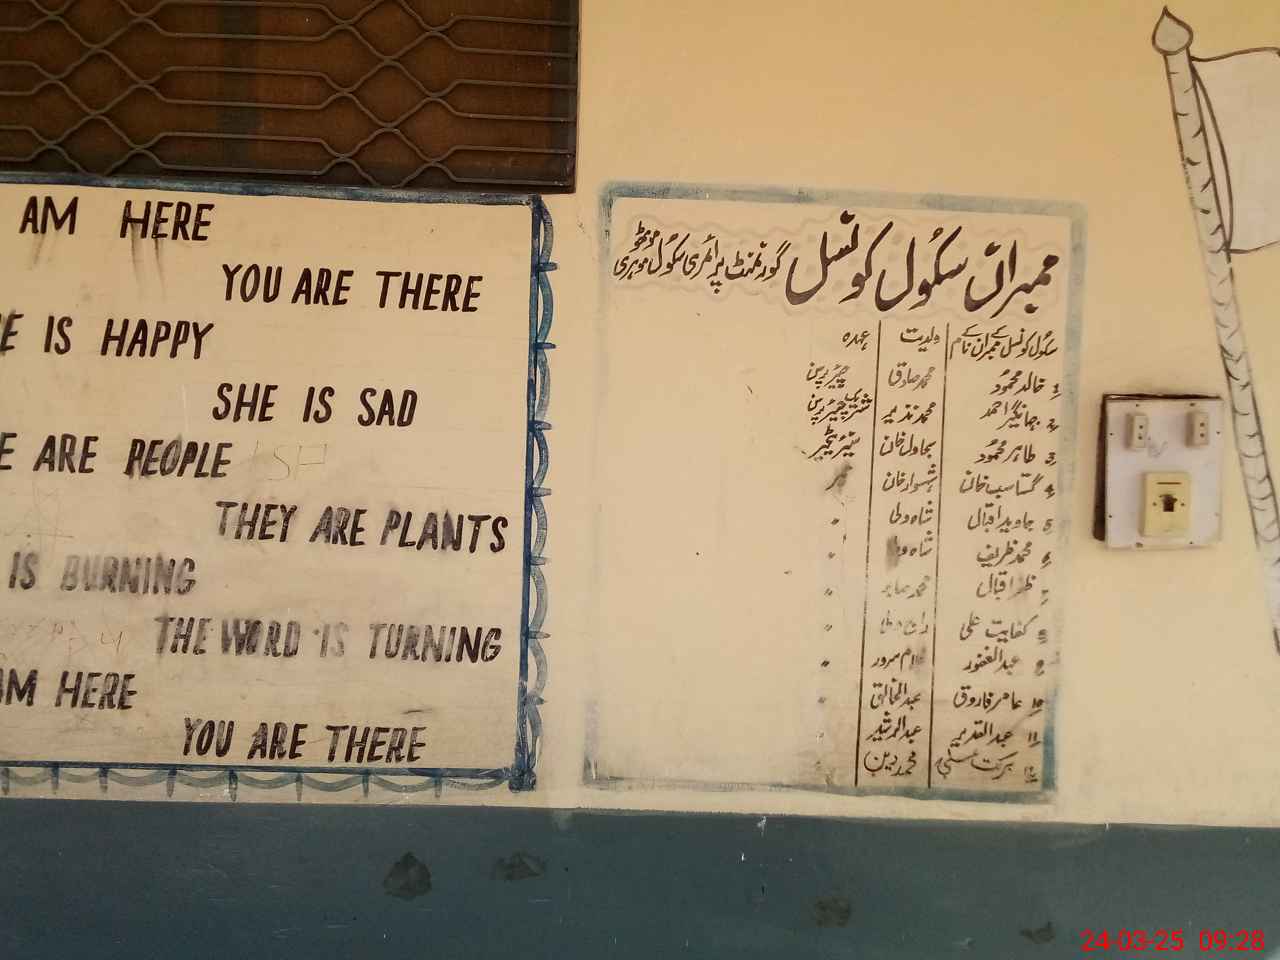 AM HERE
YOU ARE THERE
E IS HAPPY
SHE IS SAD
E ARE PEOPLE
THEY ARE PLANTS
IS BURNING
THE WORD IS TURNING
AM HERE
YOU ARE THERE
ممبران سکول کونسل گورنمنٹ پرائمری سکول موہری
سکول کونسل کے ممبران کے نام ولدیت عہدہ
1 خالد محمود محمد صادق چیئرپرسن
2 جہانگیر احمد محمد نذیر شریک چیئرپرسن
3 طاہر محمود سجاول خان
4 گستاسب خان شہسوار خان ممبر
5 جاوید اقبال شاہ ولی "
6 محمد ظریف شاہ "
7 ظفر اقبال محمد صابر "
8 کفایت علی "
9 عبدالغفور سرور "
10 عامر فاروق عبدالخالق
11 عبدالقدیر عبدالرشید
12 برکت محمد دین
24-03-25 09:28